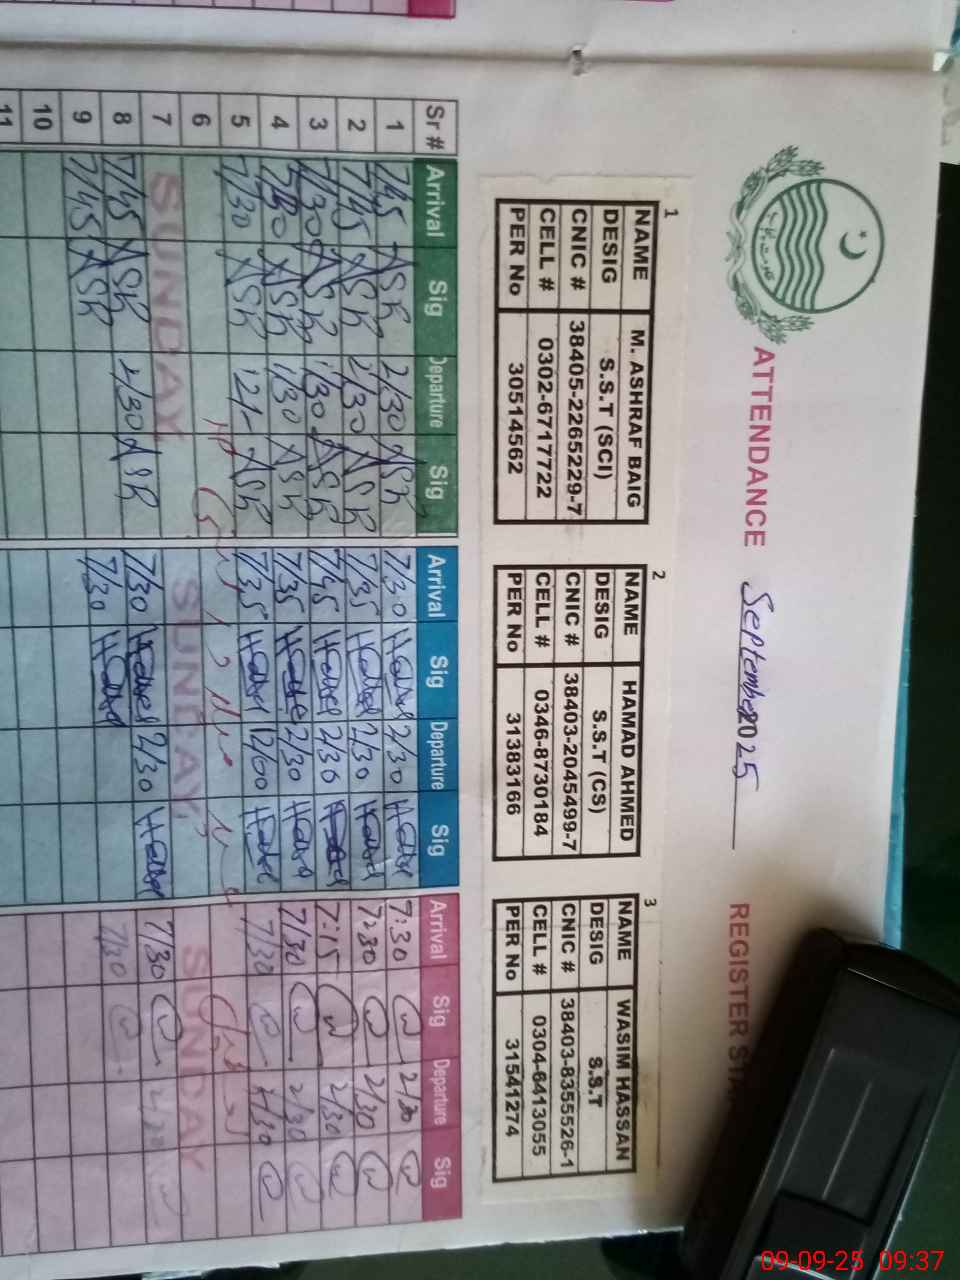 ATTENDANCE September 2025 REGISTER
1
NAME M. ASHRAF BAIG
DESIG S.S.T (SCI)
CNIC # 38405-2265229-7
CELL # 0302-6717722
PER No 30514562
2
NAME HAMAD AHMED
DESIG S.S.T (CS)
CNIC # 38403-2045499-7
CELL # 0346-8730184
PER No 31383166
3
NAME WASIM HASSAN
DESIG S.S.T
CNIC # 38403-8355526-1
CELL # 0304-6413055
PER No 31541274
Sr # Arrival Sig Departure Sig Arrival Sig Departure Sig Arrival Sig Departure Sig
1 7/45 ASR 2/30 ASR 7/30 2/30 7:30 2/30
2 7/45 ASR 2/30 ASR 7/35 2/30 7:30 2/30
3 7/30 ASR 1/30 ASR 7/45 2/30 7:15 2/30
4 ASR 1/30 ASR 7/35 2/30 7/30 2/30
5 7/30 ASR 12/- ASR 7/35 12/00 7/30
6
7 SUNDAY SUNDAY SUNDAY
8 7/45 ASR 2/30 ASR 7/30 2/30 7/30
9 7/45 ASR 7/30 7/30
10
11
09-09-25 09:37